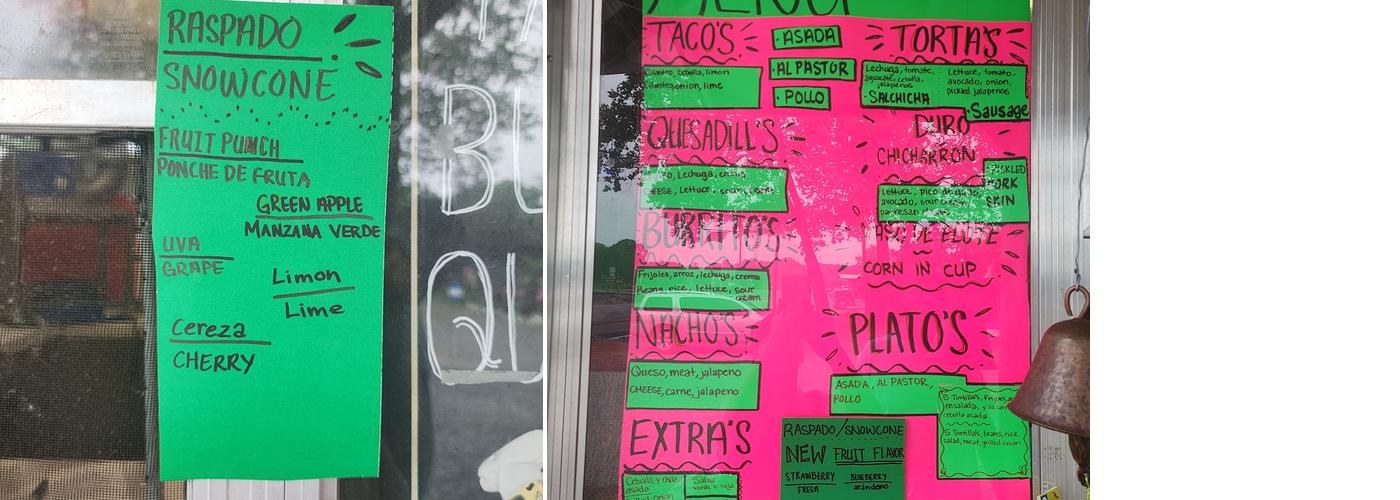 RASPADO
SNOWCONE
FRUIT PUNCH
PONCHE DE FRUTA
GREEN APPLE
MANZANA VERDE
UVA
GRAPE
Limon
Lime
Cereza
CHERRY
MENU
TACO'S
• ASADA
• AL PASTOR
• POLLO
Cilantro, cebolla, limon
Cilantro, onion, lime
TORTA'S
Lechuga, tomate,
aguacate, cebolla,
jalapeños
• SALCHICHA
Lettuce, tomato,
avocado, onion
pickled jalapeños
• Sausage
QUESADILL'S
Lechuga, crema
CHEESE, Lettuce, sour cream
DURO
CHICHARRON
PICKLED
PORK
SKIN
Lettuce, pico de gallo,
avocado, sour cream
parmesan
BURRITO'S
Frijoles, arroz, lechuga, crema
Beans, rice, lettuce, sour
cream
VASO DE ELOTE
CORN IN CUP
NACHO'S
Queso, meat, jalapeno
CHEESE, carne, jalapeno
PLATO'S
ASADA, AL PASTOR,
POLLO
5 Tortilla's, frijoles,
ensalada, y la carne
cebolla asada
5 Tortilla's, beans, rice
salad, meat, grilled onion
EXTRA'S
Cebolla y chile
asada
Salsa
verde o roja
RASPADO/SNOWCONE
NEW FRUIT FLAVOR
STRAWBERRY
FRESA
BLUEBERRY
arándano